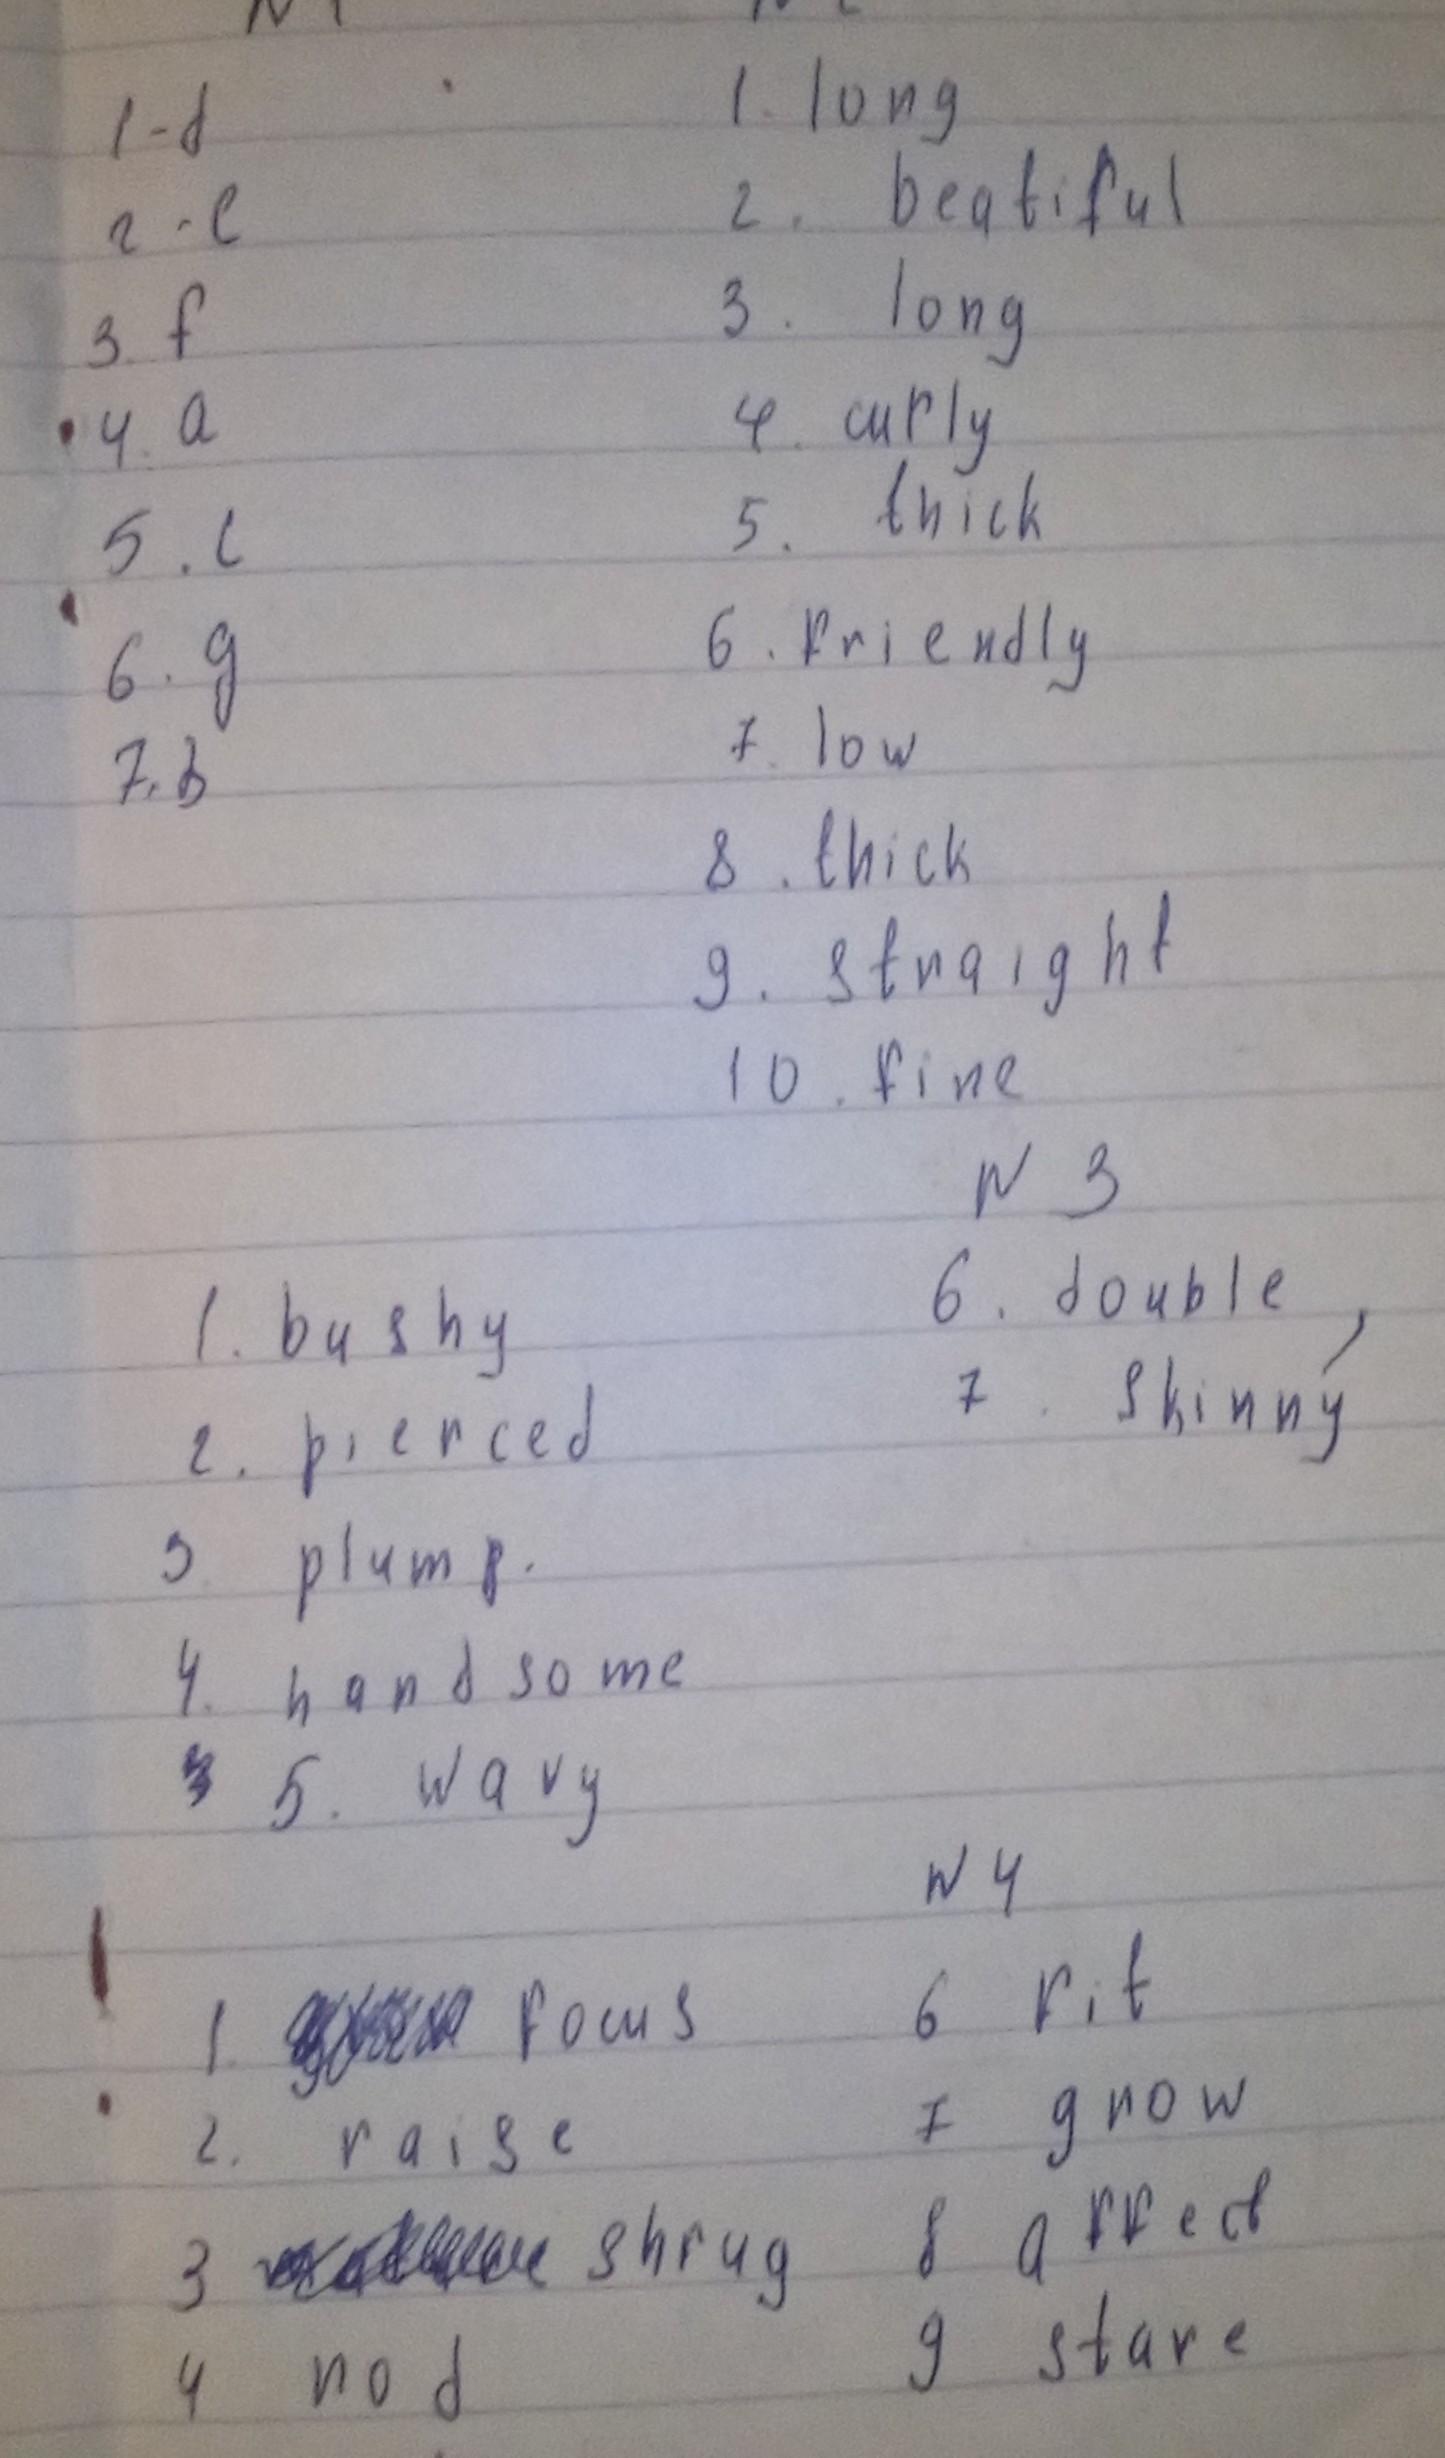 N 1
1-d
2-e
3. f
4. a
5. c
6. g
7. b
N 2
1. long
2. beatiful
3. long
4. curly
5. thick
6. friendly
7. low
8. thick
9. straight
10. fine
N 3
1. bushy
2. pierced
3 plump.
4. handsome
5. wavy
6. double,
7. skinny
N 4
1. focus
2. raise
3 shrug
4 nod
6 fit
7 grow
8 affect
9 stare